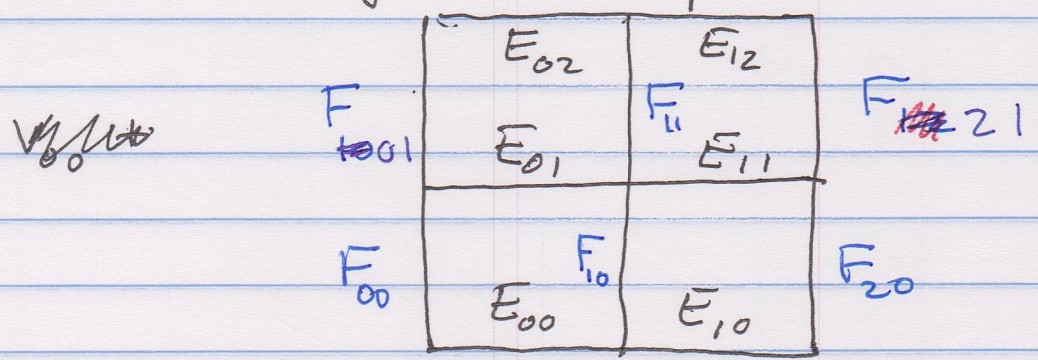 E02 E12
F01 F11 F21
E01 E11
F00 F10 F20
E00 E10